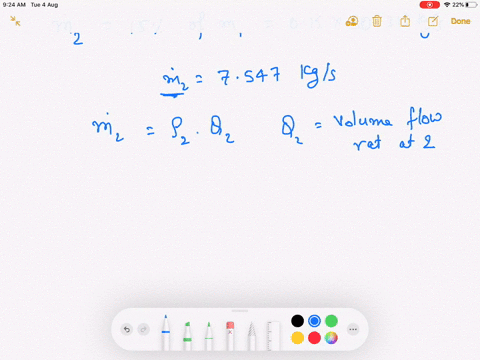 9:24 AM Tue 4 Aug
22%
Done
2
ṁ₂ = 7.547 Kg/s
ṁ₂ = ρ₂ . Q₂ Q₂ = volume flow
rat at 2